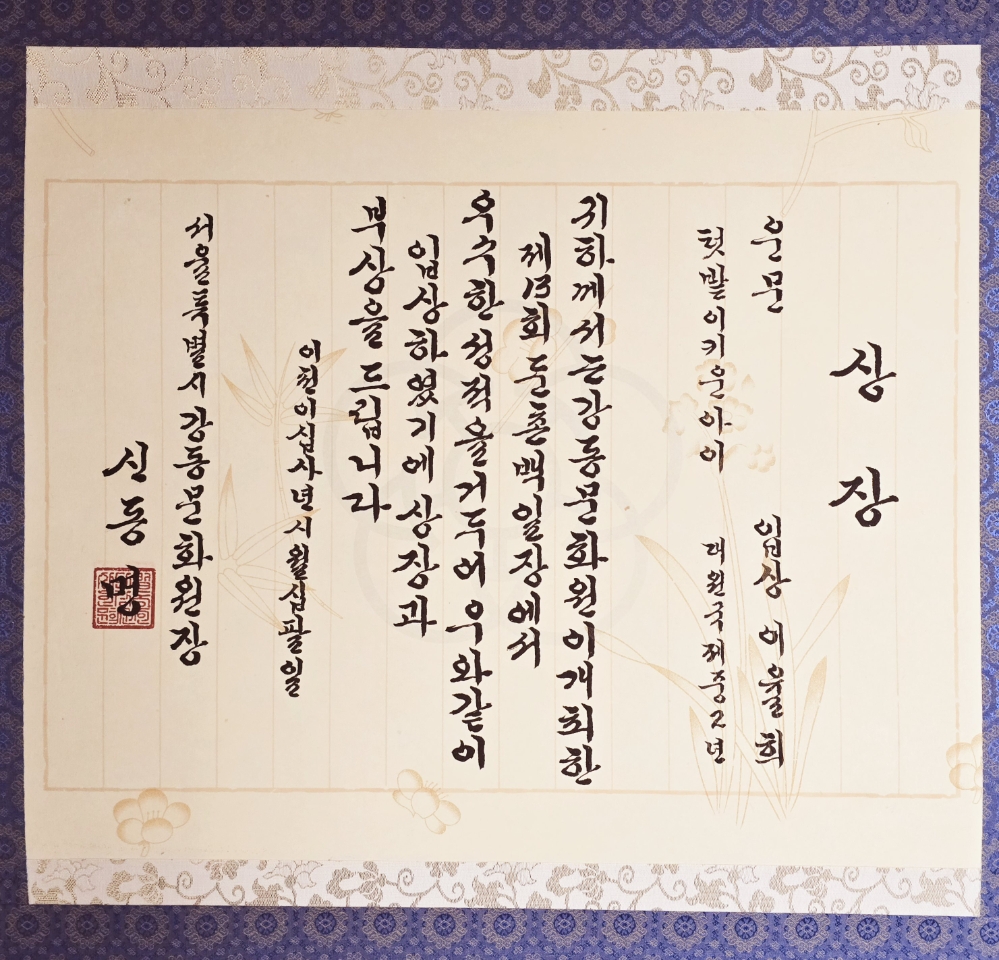 상장
운문 입상 이율희
텃밭이키운아이 대원국제중2년
귀하께서는강동문화원이개최한
제13회 둔촌백일장에서
우수한성적을거두어 우와같이
입상하였기에 상장과
부상을 드립니다
이천이십사년시월십팔일
서울특별시 강동문화원장
신동명